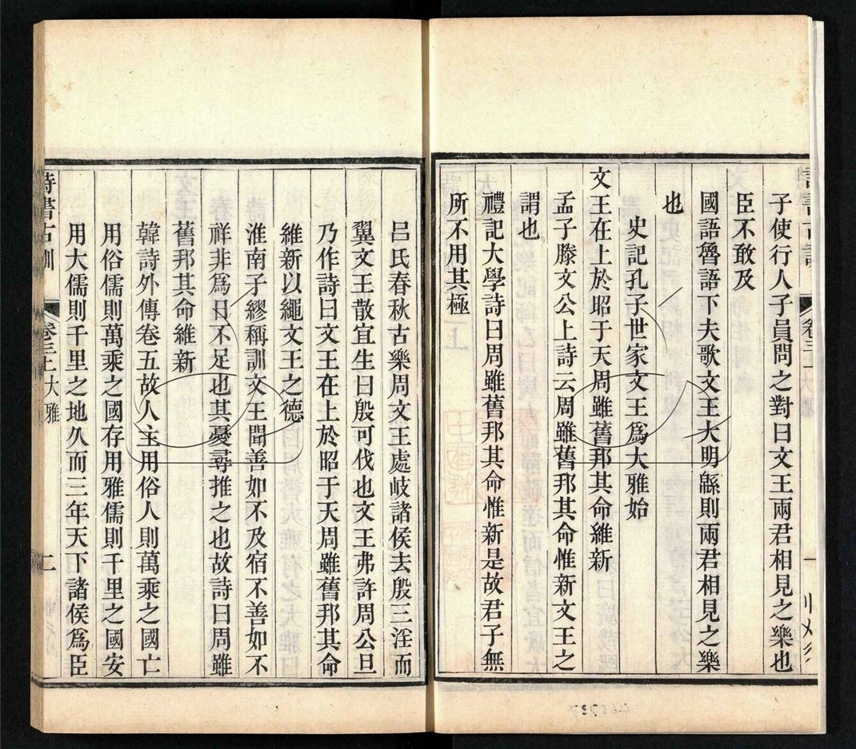 子使行人子員問之對曰文王兩君相見之樂也
臣不敢及
國語魯語下夫歌文王大明緜則兩君相見之樂
也
史記孔子世家文王爲大雅始
文王在上於昭于天周雖舊邦其命維新
孟子滕文公上詩云周雖舊邦其命惟新文王之
謂也
禮記大學詩曰周雖舊邦其命惟新是故君子無
所不用其極
呂氏春秋古樂周文王處岐諸侯去殷三淫而
翼文王散宜生曰殷可伐也文王弗許周公旦
乃作詩曰文王在上於昭于天周雖舊邦其命
維新以繩文王之德
淮南子繆稱訓文王聞善如不及宿不善如不
祥非爲日不足也其憂尋推之也故詩曰周雖
舊邦其命維新
韓詩外傳卷五故人主用俗人則萬乘之國亡
用俗儒則萬乘之國存用雅儒則千里之國安
用大儒則千里之地久而三年天下諸侯爲臣
詩書古訓 卷三上大雅 二